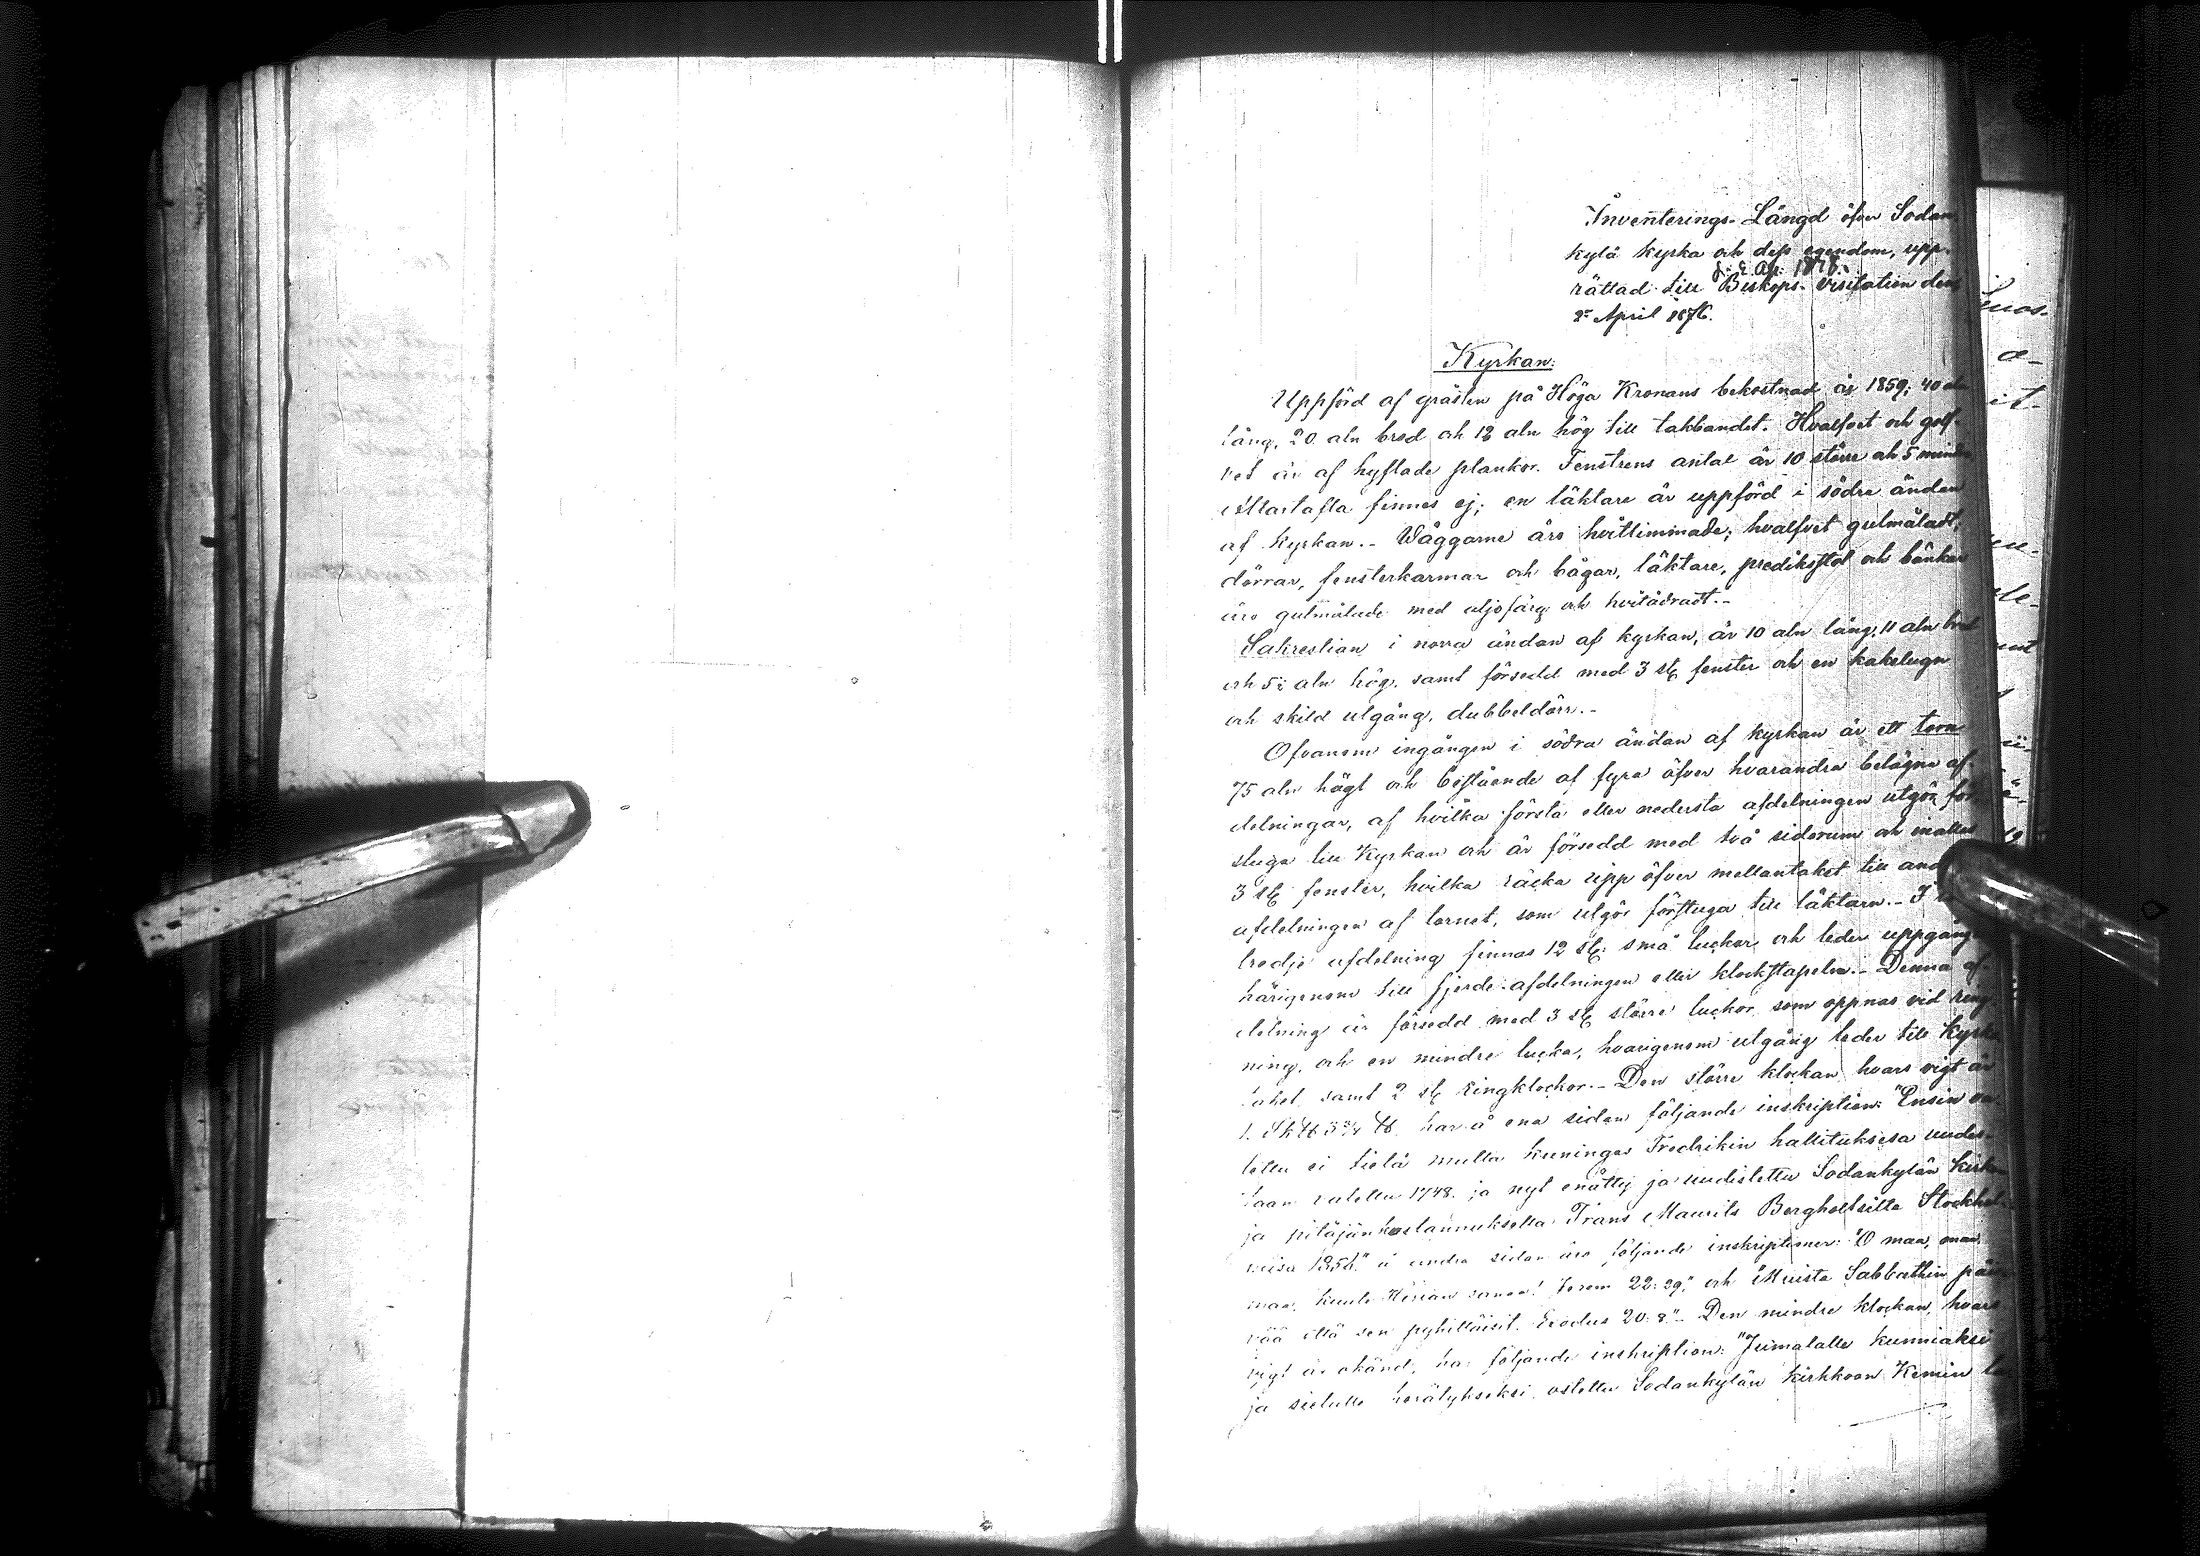 Inventerings-Längd öfver Sodan
kylä kyrka och dess egendom, upp-
d: 2 Ap: 1876.
rättad till Biskops-visitation den
2:n April 1876.
Kyrkan:
Uppförd af gråsten på Höga Kronans bekostnad år 1859; 40 aln
lång, 20 aln bred och 12 aln hög till takbandet. Hvalfvet och golf
vet är af hyflade plankor. Fenstrens antal är 10 större och 5 mindre
Altartafla finnes ej; en läktare är uppförd i södra ändan
af kyrkan.- Wäggarne äro hvitlimmade; hvalfvet gulmåladt;
dörrar, fensterkarmar och bågar, läktare, predikstol och bänkar
äro gulmålade med oljofärg och hvitådradt.-
Sakrestian i norra ändan af kyrkan, är 10 aln lång, 11 aln bred
och 5½ aln hög, samt försedd med 3 st fenster och en kakelugn
och skild utgång, dubbeldörr.-
Ofvanom ingången i södra ändan af kyrkan är ett torn
75 aln högt och bestående af fyra öfver hvarandra belägna af
delningar, af hvilka första eller nedersta afdelningen utgör för
stuga till Kyrkan och är försedd med två siderum och inalles
3 st fenster, hvilka räcka upp öfver mellantaket till and
afdelningen af tornet, som utgör förstuga till läktarn.- I
tredje afdelning finnas 12 st: små luckor och leder uppgång
härigenom till fjerde afdelningen eller klockstapeln.- Denna af
delning är försedd med 3 st större luckor, som öppnas vid ring
ning, och en mindre lucka, hvarigenom utgång leder till kyrko
taket, samt 2 st ringklockor.- Den större klockan, hvars vigt är
1. Sk℔ 3¾ ℔, har å ena sidan följande inskription: "Ensin
tettu ei tielä mutta kuningas Fredrikin hallituksesa uudes-
taan valettu 1748. ja nyt enätty ja uudistettu Sodankylän kirkon
ja pitäjän kostannuksella Frans Maurits Bergholtsilta Stockhol-
misa 1858." å andra sidan äro följande inskriptioner: "O maa, maa,
maa, kuule Herran sanaa! Jerem 22: 29," och "Muista Sabbathin päi
vää että sen pyhittäisit. Exodus 20: 8."- Den mindre klockan, hvars
vigt är okänd, har följande inskription: "Jumalalle kunniaksi
ja sieluille herätykseksi, ostettu Sodankylän kirkkoon Kemin